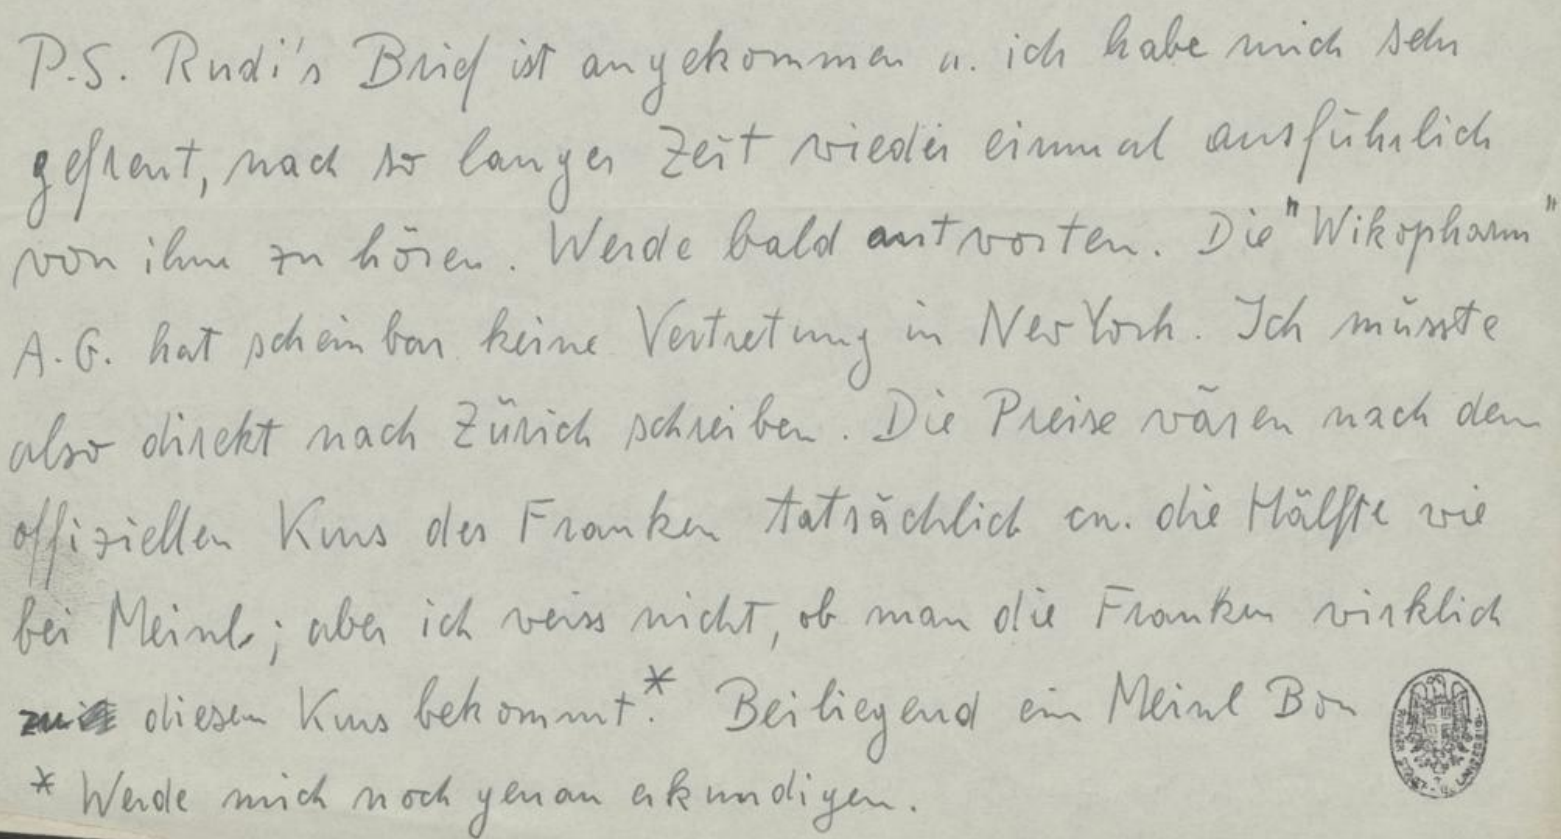 P.S. Rudi's Brief ist angekommen u. ich habe mich sehr
gefreut, nach so langer Zeit wieder einmal ausführlich
von ihm zu hören. Werde bald antworten. Die "Wikopharm"
A.G. hat scheinbar keine Vertretung in New York. Ich müsste
also direkt nach Zürich schreiben. Die Preise wären nach dem
offiziellen Kurs des Franken tatsächlich ca. die Hälfte wie
bei Meinl; aber ich weiss nicht, ob man die Franken wirklich
zu diesem Kurs bekommt.* Beiliegend ein Meinl Bon
* Werde mich noch genau erkundigen.